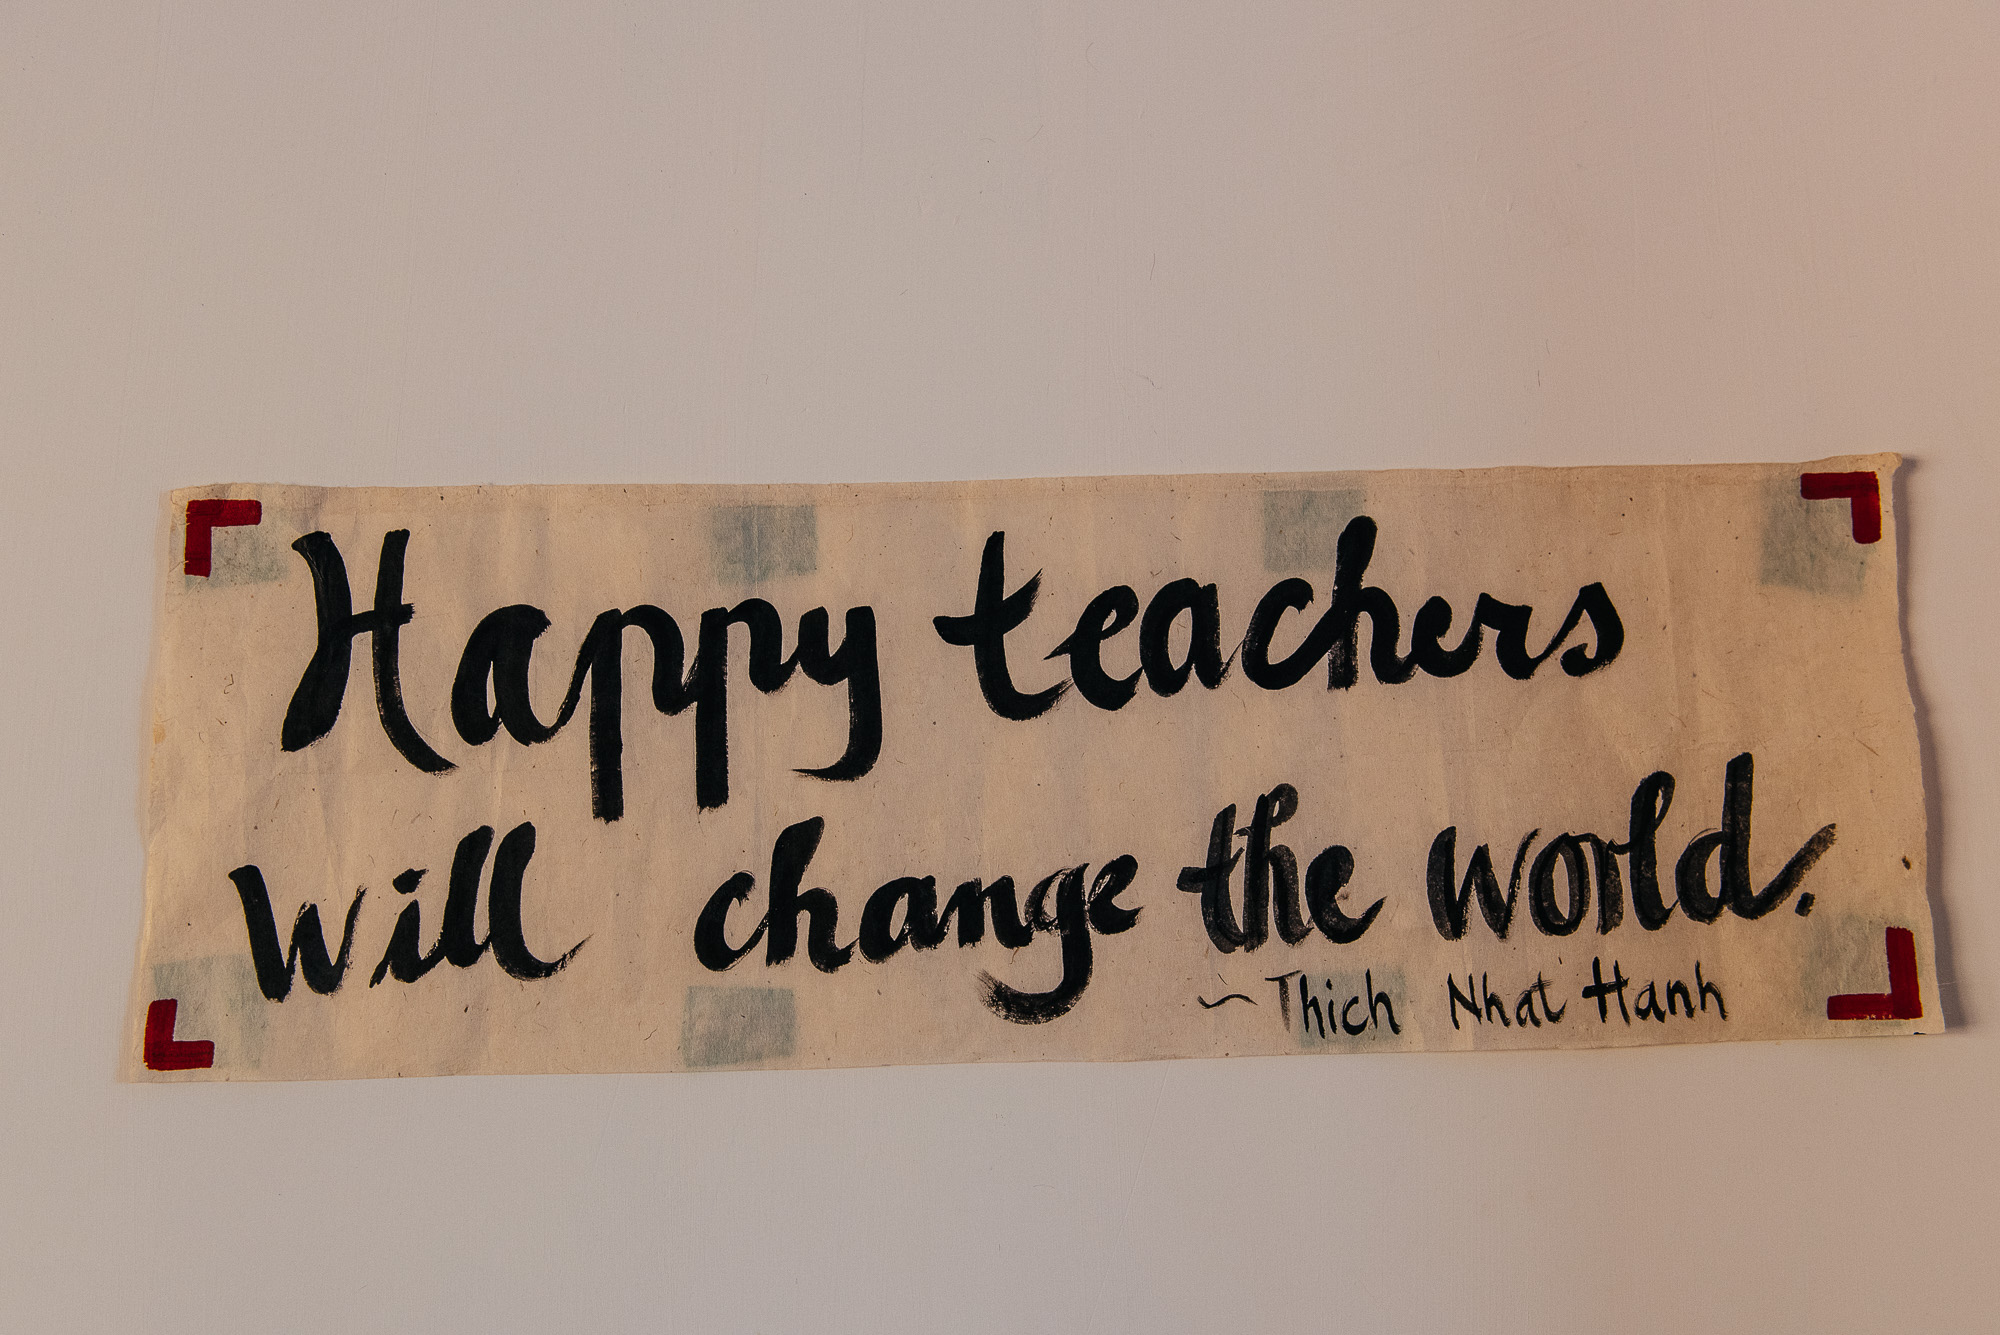 Happy teachers
Will change the world.
~ Thich Nhat Hanh